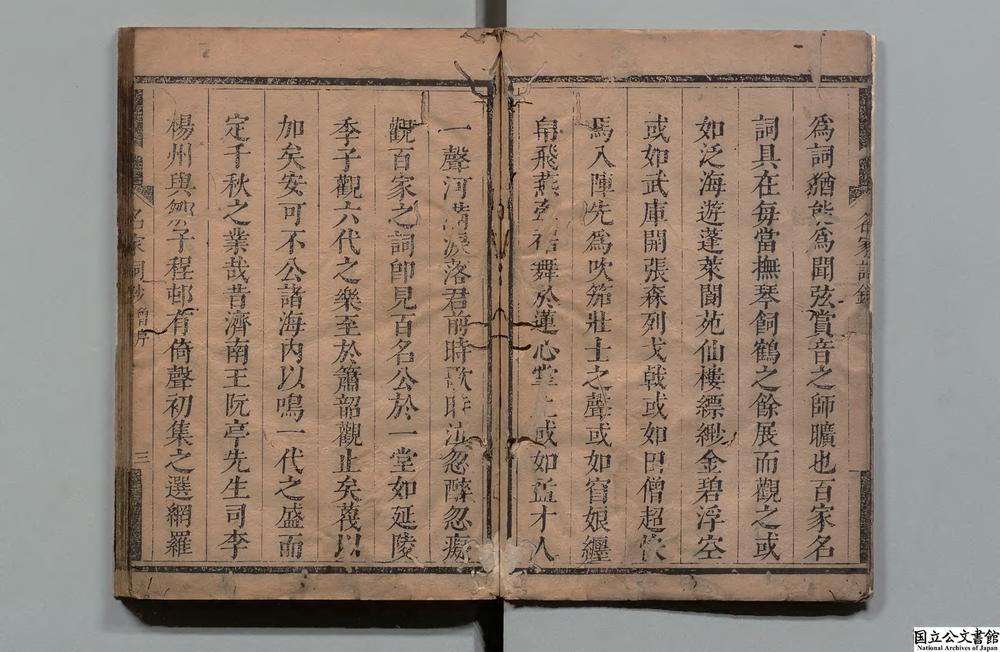 爲詞猶能爲聞弦賞音之師曠也百家名
詞具在每當撫琴飼鶴之餘展而觀之或
如泛海遊蓬萊閬苑仙樓縹緲金碧浮空
或如武庫開張森列戈戟或如巴僧超忺
馬入陣先爲吹笳壯士之聲或如窅娘纏
帛飛燕 舞於蓮心掌上或如孟才人
一聲河滿淚落君前時歌時泣忽醉忽癡
覩百家之詞卽見百名公於一堂如延陵
季子觀六代之樂至於簫韶觀止矣蔑以
加矣安可不公諸海内以鳴一代之盛而
定千秋之業哉昔濟南王阮亭先生司李
楊州與鄒子程邨有倚聲初集之選網羅
名家詞鈔
名家詞鈔 曾序
三
国立公文書館
National Archives of Japan